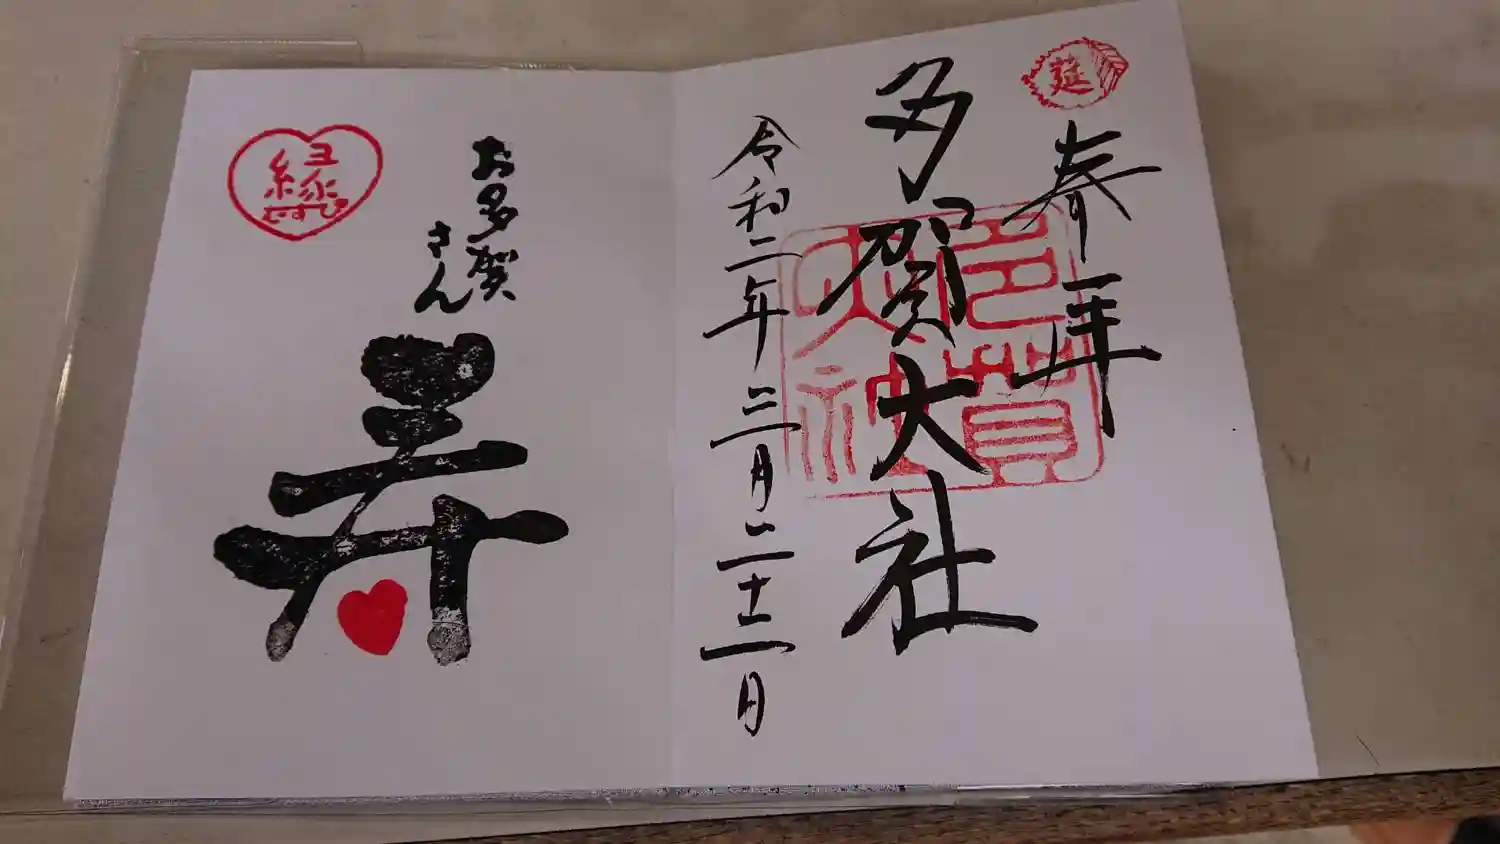 莚
奉拝
多賀大社
令和二年三月二十二日
お多賀
さん
寿
縁
むすび